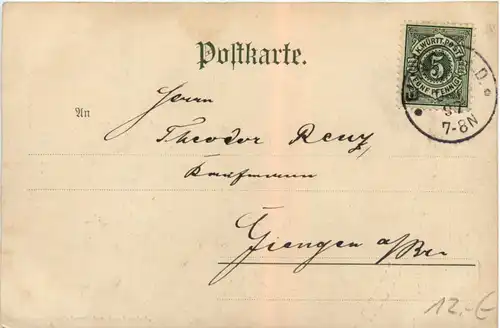 Postkarte.
K. WÜRTT. POST
5
FÜNF PFENNIG
D.
97
7-8N
An
Herrn
Theodor Renz
Kaufmann
Giengen a/Brz
12.-€